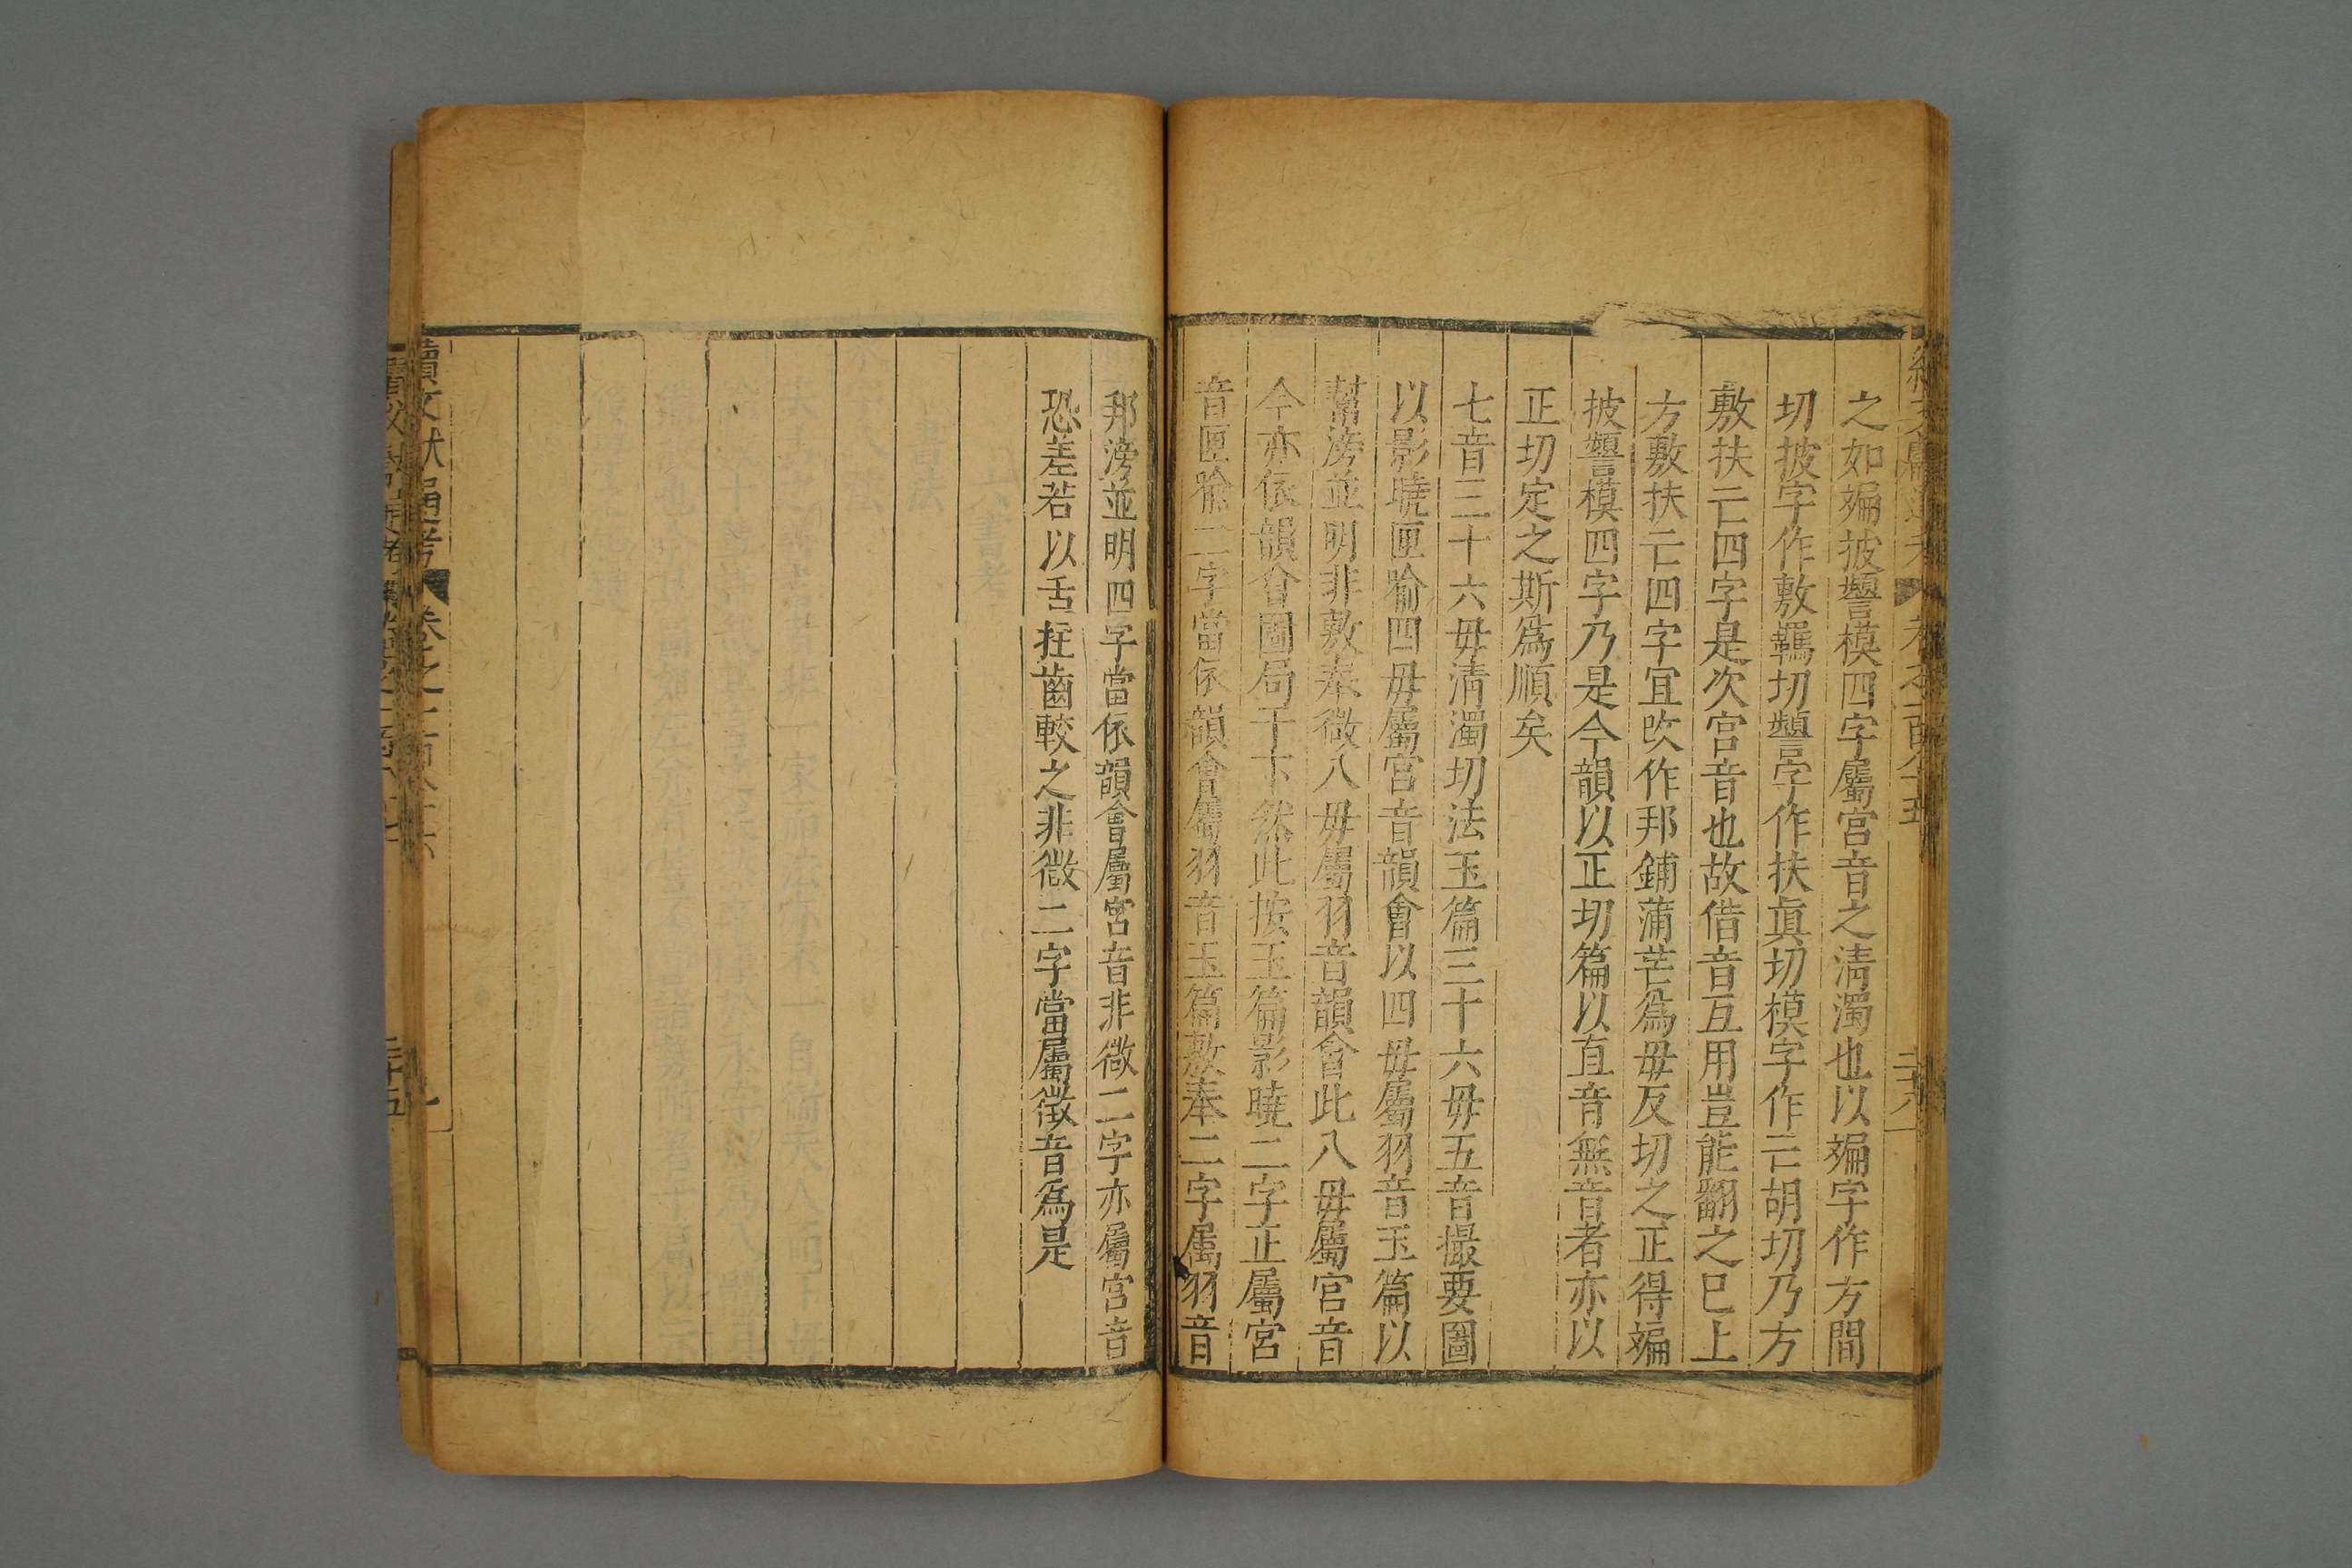 之如㛹披謦模四字屬宮音之淸濁也以㛹字作方間
切披字作敷羈切謦字作扶眞切模字作亡胡切乃方
敷扶亡四字是次宮音也故借音互用豈能翻之巳上
方敷扶亡四字宜改作邦鋪蒲芒爲毋反切之正得㛹
披謦模四字乃是今韻以正切篇以直音無音者亦以
正切定之斯爲順矣
七音三十六毋淸濁切法玉篇三十六毋五音撮要圖
以影曉匣喻四毋屬宮音韻會以四毋屬羽音玉篇以
幫滂並明非敷奉微八毋屬羽音韻會此八毋屬宮音
今亦依韻會圖局于下然此按玉篇影曉二字正屬宮
音匣喻二字當依韻會屬羽音玉篇敷奉二字屬羽音
邦滂並明四字當依韻會屬宮音非微二字亦屬宮音
恐差若以舌拄齒較之非微二字當屬徵音爲是
續文獻通考 卷之一百八十五